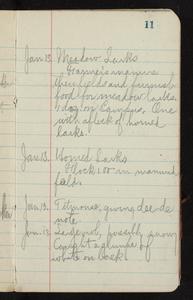 11
Jan 13. Meadow Larks
Farmers manure
their fields and furnish
food for meadow larks.
5 day on Campus. One
with a flock of horned
larks.
Jan 13. Horned Larks
Flock 100 in manured
field.
Jan. 13. Titmouse, giving dee-de
note.
Jan. 13. possibly snow
Caught a glimpse of
white on back.